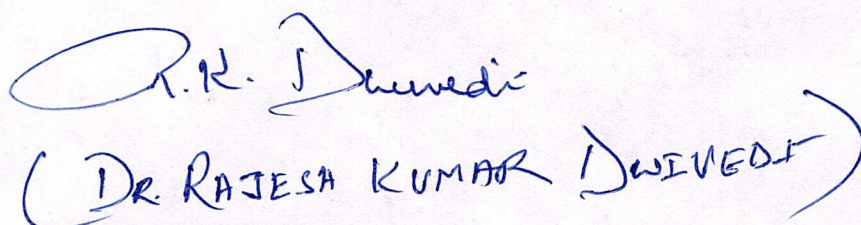 R.K. Dwivedi
(DR. RAJESH KUMAR DWIVEDI)